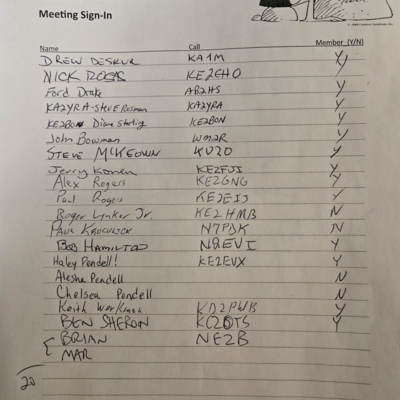 Meeting Sign-In
Name Call Member (Y/N)
DREW KA1M Y
NICK KE2EHO Y
Ford Drake AB2HS Y
KA2YRA-Steve KA2YRA Y
KE2BON Diane Sterling KE2BON Y
John Bowman Y
STEVE MCKEOWN KV2O Y
Jerry KE2FJI Y
Alex Rogers KE2GNG Y
Paul Rogers KE2EIJ Y
Roger Jr. KE2HMB N
PAUL N7PDK N
BOB HAMILTON N2EVI Y
Haley Pendell! KE2EVX Y
Alesha Pendell N
Chelsea Pendell N
Keith KD2PWB Y
BEN SHERON Y
BRIAN NE2B
MAR
20